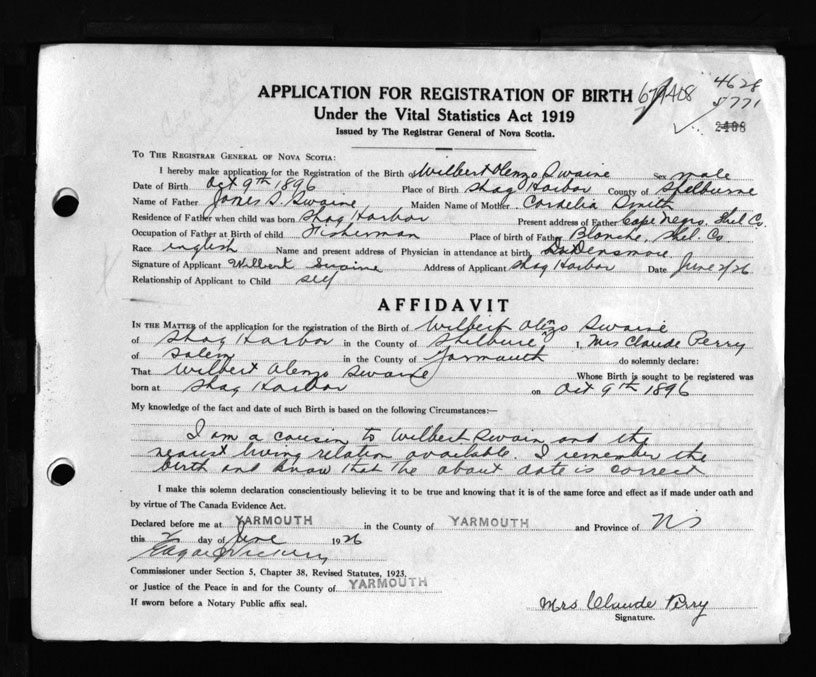 APPLICATION FOR REGISTRATION OF BIRTH
4628
5771
Under the Vital Statistics Act 1919
2408
Issued by The Registrar General of Nova Scotia.
TO THE REGISTRAR GENERAL OF NOVA SCOTIA:
I hereby make application for the Registration of the Birth of Wilbert Alenzo Swaine Sex male
Date of Birth Oct 9th 1896 Place of Birth Shag Harbor County of Shelburne
Name of Father James S. Swaine Maiden Name of Mother Cordelia Smith
Residence of Father when child was born Shag Harbor Present address of Father Cape Negro, Shel. Co.
Occupation of Father at Birth of child Fisherman Place of birth of Father Blanche, Shel. Co.
Race english Name and present address of Physician in attendance at birth Densmore
Signature of Applicant Wilbert Swaine Address of Applicant Shag Harbor Date June 2/26
Relationship of Applicant to Child self
AFFIDAVIT
IN THE MATTER of the application for the registration of the Birth of Wilbert Alenzo Swaine
of Shag Harbor in the County of Shelburne I, Mrs Claude Perry
of Salem in the County of Yarmouth do solemnly declare:
That Wilbert Alenzo Swaine Whose Birth is sought to be registered was
born at Shag Harbor on Oct 9th 1896
My knowledge of the fact and date of such Birth is based on the following Circumstances:—
I am a cousin to Wilbert Swain and the
nearest living relation available. I remember the
birth and know that the about date is correct
I make this solemn declaration conscientiously believing it to be true and knowing that it is of the same force and effect as if made under oath and
by virtue of The Canada Evidence Act.
Declared before me at YARMOUTH in the County of YARMOUTH and Province of NS
this 2 day of June 1926
Commissioner under Section 5, Chapter 38, Revised Statutes, 1923,
or Justice of the Peace in and for the County of YARMOUTH
If sworn before a Notary Public affix seal.
Mrs Claude Perry
Signature.